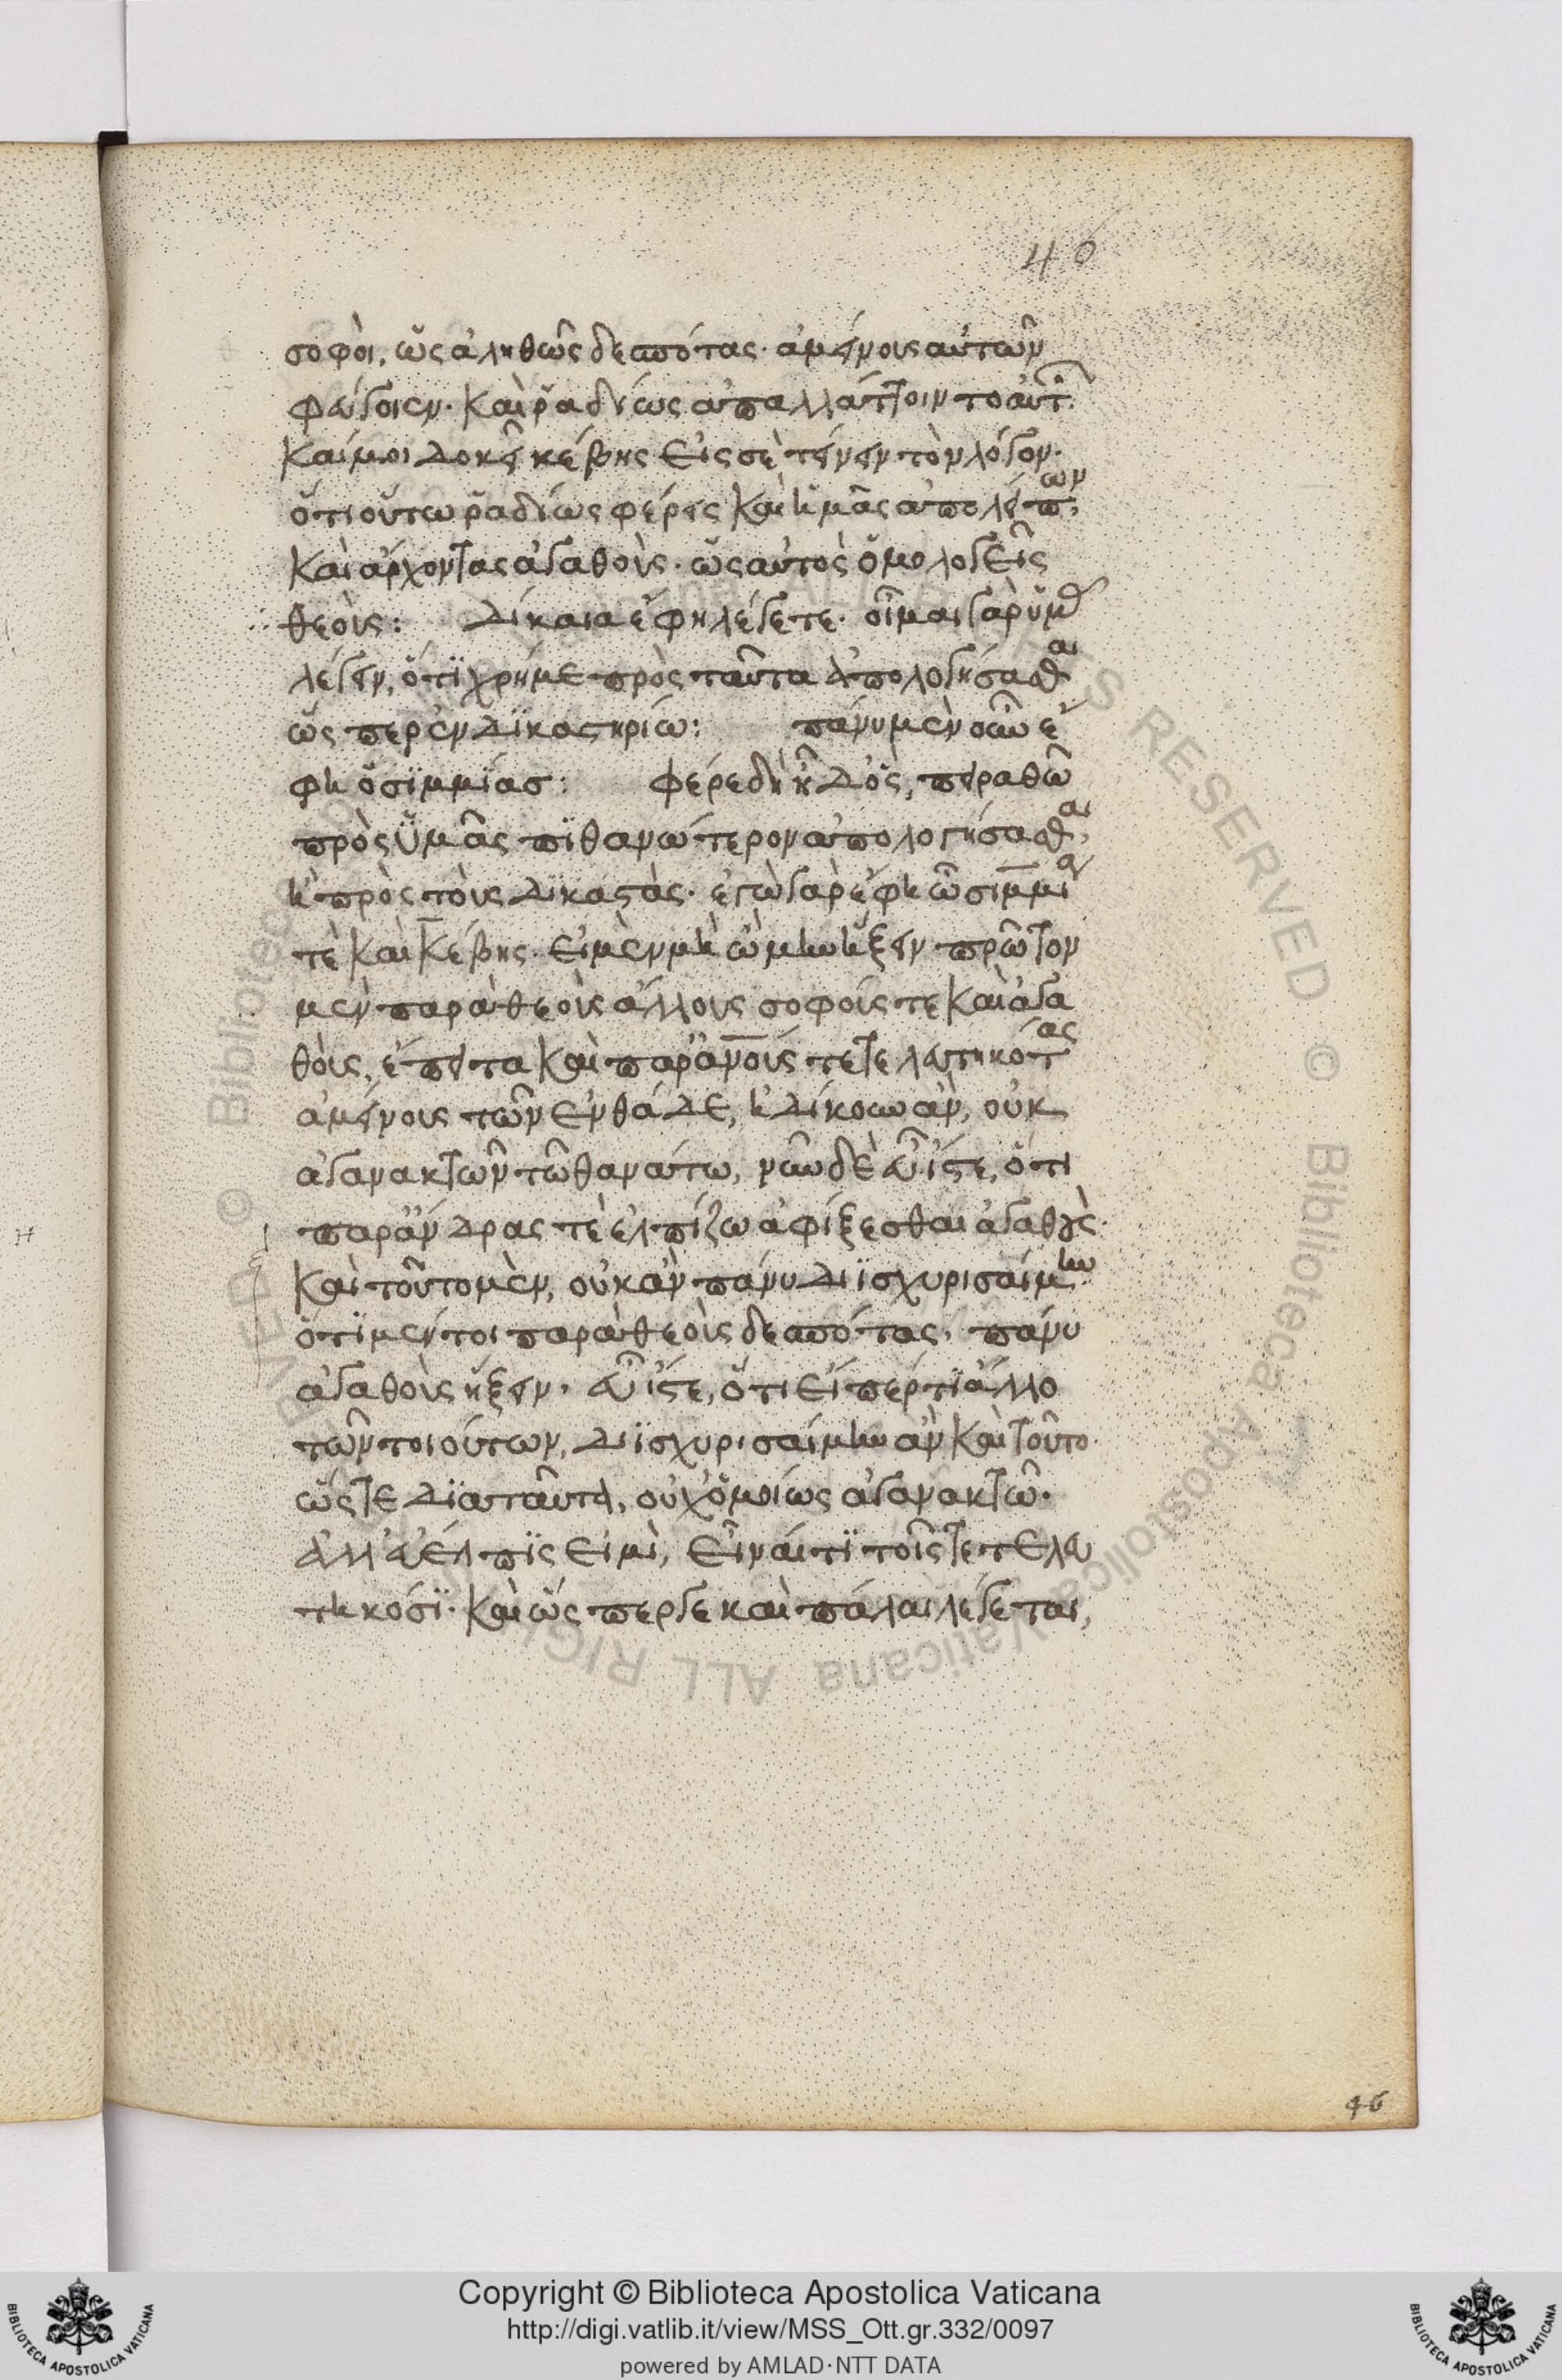 40
σοφοὶ, ὡς ἀληθῶς δεσπότας· ἀμείνους αὐτῶν
φεύγοιεν· καὶ ῥαδίως ἀπαλλάττοιντο αὐτ(ῶν)·
καί μοι δοκεῖ κέβης εἰς σὲ τείνειν τὸν λόγον·
ὅτι οὕτω ῥαδίως φέρεις καὶ ἡμᾶς ἀπολείπων,
καὶ ἄρχοντας ἀγαθοὺς· ὡς αὐτὸς ὁμολογεῖς
θεοὺς: Δίκαια ἔφη λέγετε· οἶμαι γὰρ ὑμᾶς
λέγειν, ὅτι χρή με πρὸς ταῦτα ἀπολογήσασθαι
ὥς περ ἐν δικαστηρίω: πάνυ μὲν οὖν ἔ
φη ὁ σϊμμίας: φέρε δὴ ἦ δὸς, πειραθῶ
πρὸς ὑμᾶς πϊθανώτερον ἀπολογήσασθαι,
ἢ πρὸς τοὺς δϊκαστὰς· ἐγὼ γὰρ ἔφη ὦ σιμμία
τὲ καὶ Κέβης· εἰ μὲν μὴ ὤμην ἥξειν πρῶτον
μὲν παρὰ θεοὺς ἄλλους σοφούς τε καὶ ἀγα
θοὺς, ἔπειτα καὶ παρ' ἀνους τετελευτηκότας
ἀμείνους τῶν ἐνθάδε, ἠδίκουν ἂν, οὐκ
ἀγανακτῶν τῶ θανάτω, νῦν δὲ εὖ ἴστε, ὅτι
παρ' ἄνδρας τὲ ἐλπίζω ἀφίξεσθαι ἀγαθοὺς·
καὶ τοῦτο μὲν, οὐκ ἂν πάνυ διϊσχυρισαίμην
ὅτϊ μέντοι παρὰ θεοὺς δεσπότας, πάνυ
ἀγαθοὺς ἥξειν, εὖ ἴστε, ὅτι εἴπερ τϊ ἄλλο
τῶν τοιούτων, διϊσχυρισαίμην ἂν καὶ τοῦτο·
ὥστε δϊα ταῦτα, οὐχ ὁμοίως ἀγανακτῶ·
ἀλλ' εὔελπϊς εἰμὶ, εἶναί τϊ τοῖς τετελευ
τηκόσϊ· καὶ ὥς περ γε καὶ πάλαι λέγεται,
46
Copyright © Biblioteca Apostolica Vaticana
http://digi.vatlib.it/view/MSS_Ott.gr.332/0097
powered by AMLAD·NTT DATA
BIBLIOTECA APOSTOLICA VATICANA
BIBLIOTECA APOSTOLICA VATICANA
© Biblioteca Apostolica Vaticana ALL RIGHTS RESERVED